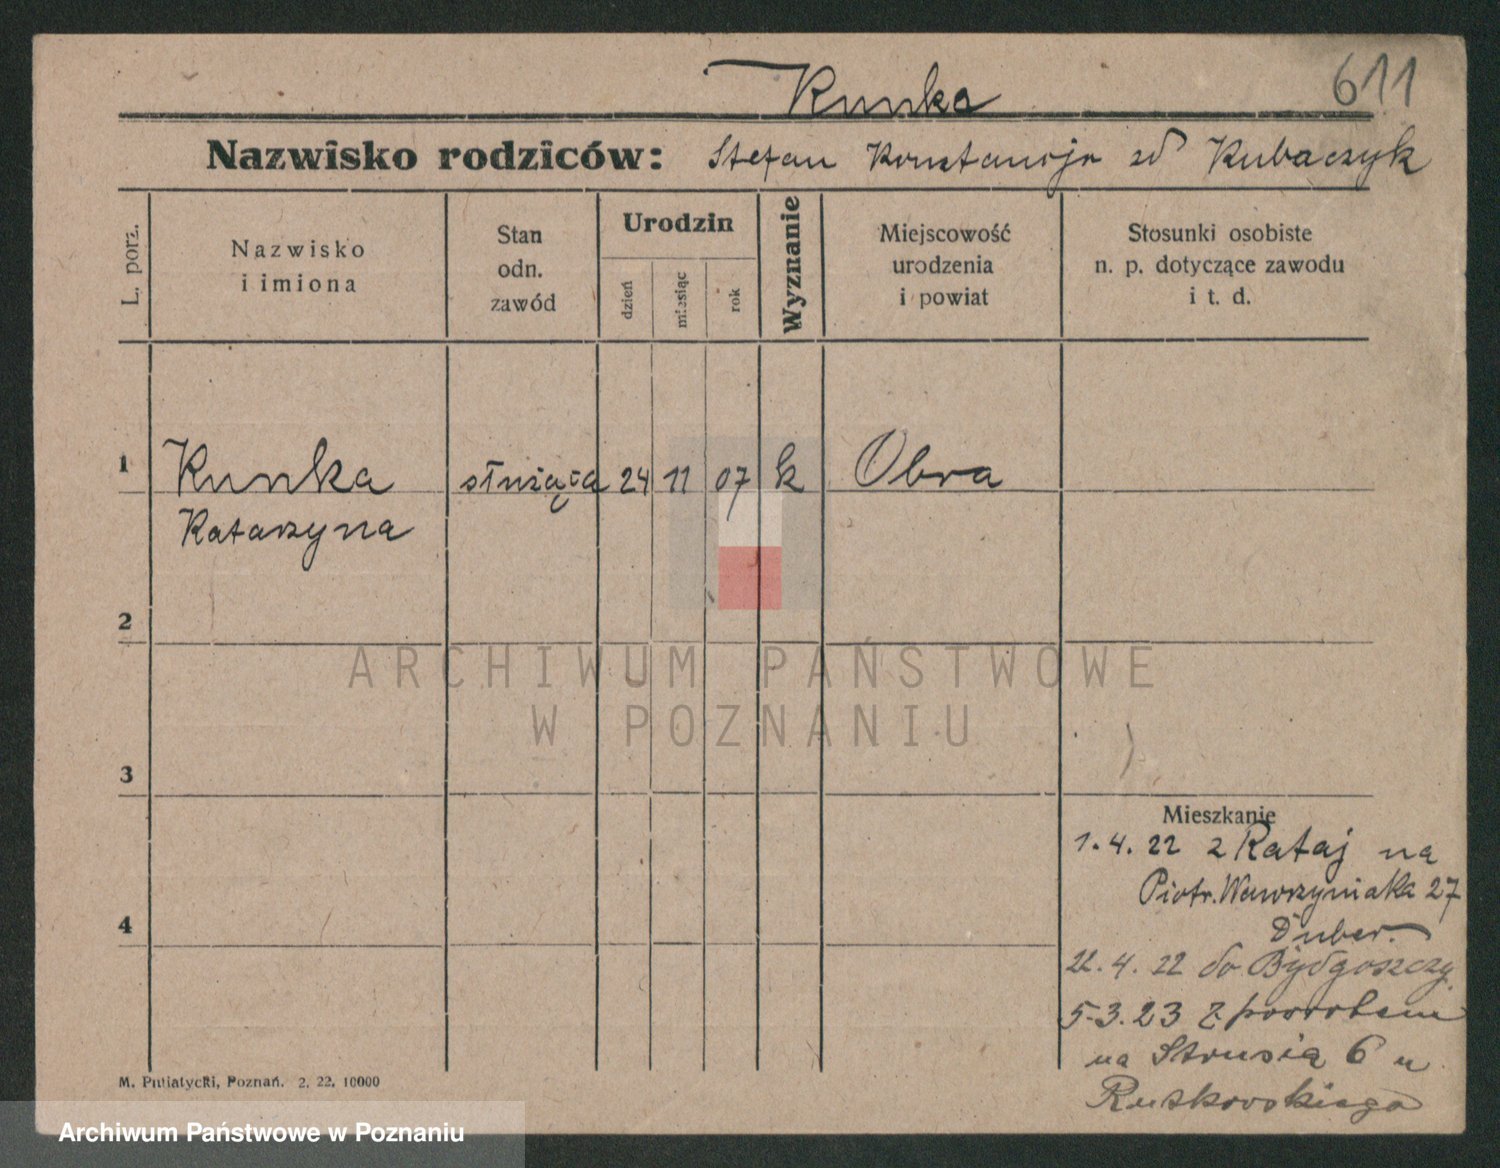 Kunka
611
Nazwisko rodziców: Stefan Konstancja zd Kubaczyk
L. porz.
Nazwisko
i imiona
Stan
odn.
zawód
Urodzin
dzień
miesiąc
rok
Wyznanie
Miejscowość
urodzenia
i powiat
Stosunki osobiste
n. p. dotyczące zawodu
i t. d.
1 Kunka służąca 24 11 07 k Obra
Katarzyna
2
ARCHIWUM PAŃSTWOWE
W POZNANIU
3
Mieszkanie
1.4.22 z Rataj na
Piotr. Wawrzyniaka 27
4
Duber.
22.4.22 do Bydgoszczy
5.3.23 z powrotem
na Strusia 6 u
Rutkowskiego
M. Putiatycki, Poznań. 2. 22. 10000
Archiwum Państwowe w Poznaniu